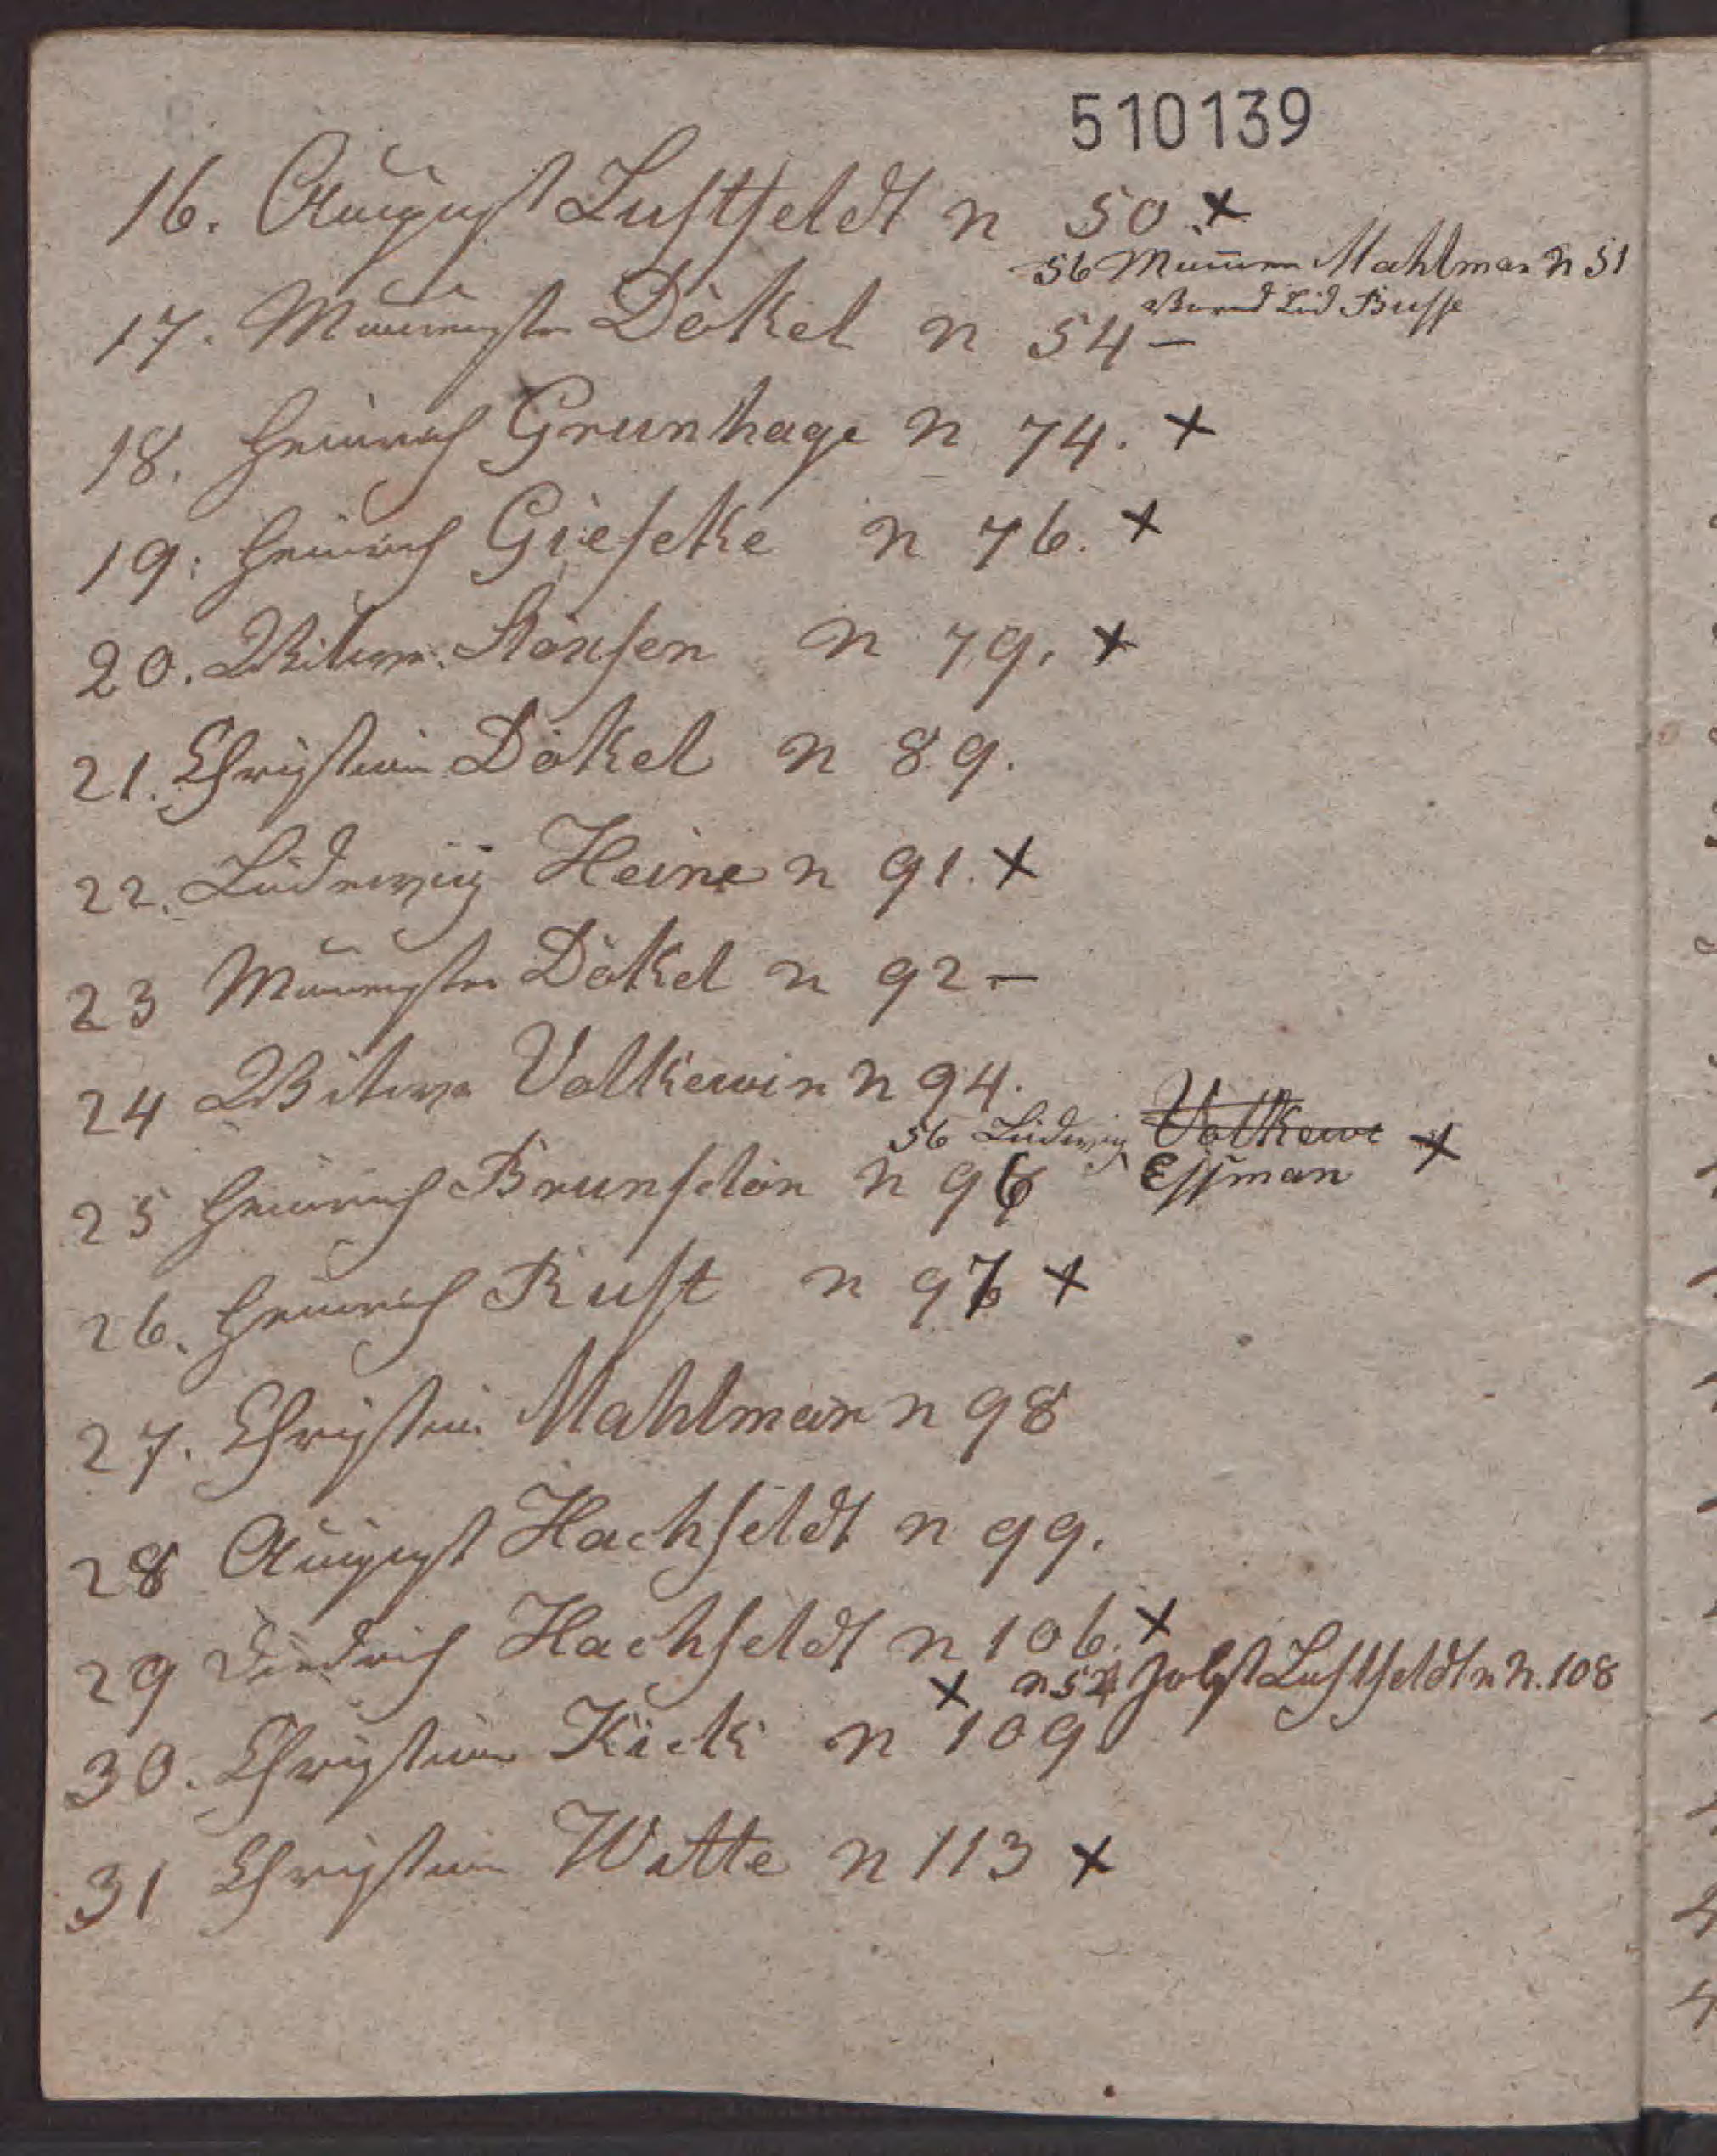 510139
16. August Lustfeldt n 50. +
56 Maurer Mahlman n 51
Bernd Lud Busse
17. Maurmster Dökel n 54 –
18. Heinrich Grunhage n 74. +
19. Heinrich Gieseke n 76. +
20. Witwe Könsen n 79. +
21. Christian Dökel n 89.
22. Ludewig Heine n 91. +
23 Maurmster Dökel n 92 –
24 Witwe Volkewin n 94.
56 Ludwig Volkewi +
25 Heinrich Brunschön n 96 Essman
26. Heinrich Rust n 97 +
27. Christian Mahlman n 98
28 August Hachfeldt n 99.
29 Diedrich Hachfeldt n 106. +
+ n 54 Jobst Lustfeldt n N. 108
30. Christian Kick n 109
31 Christian Witte n 113 +